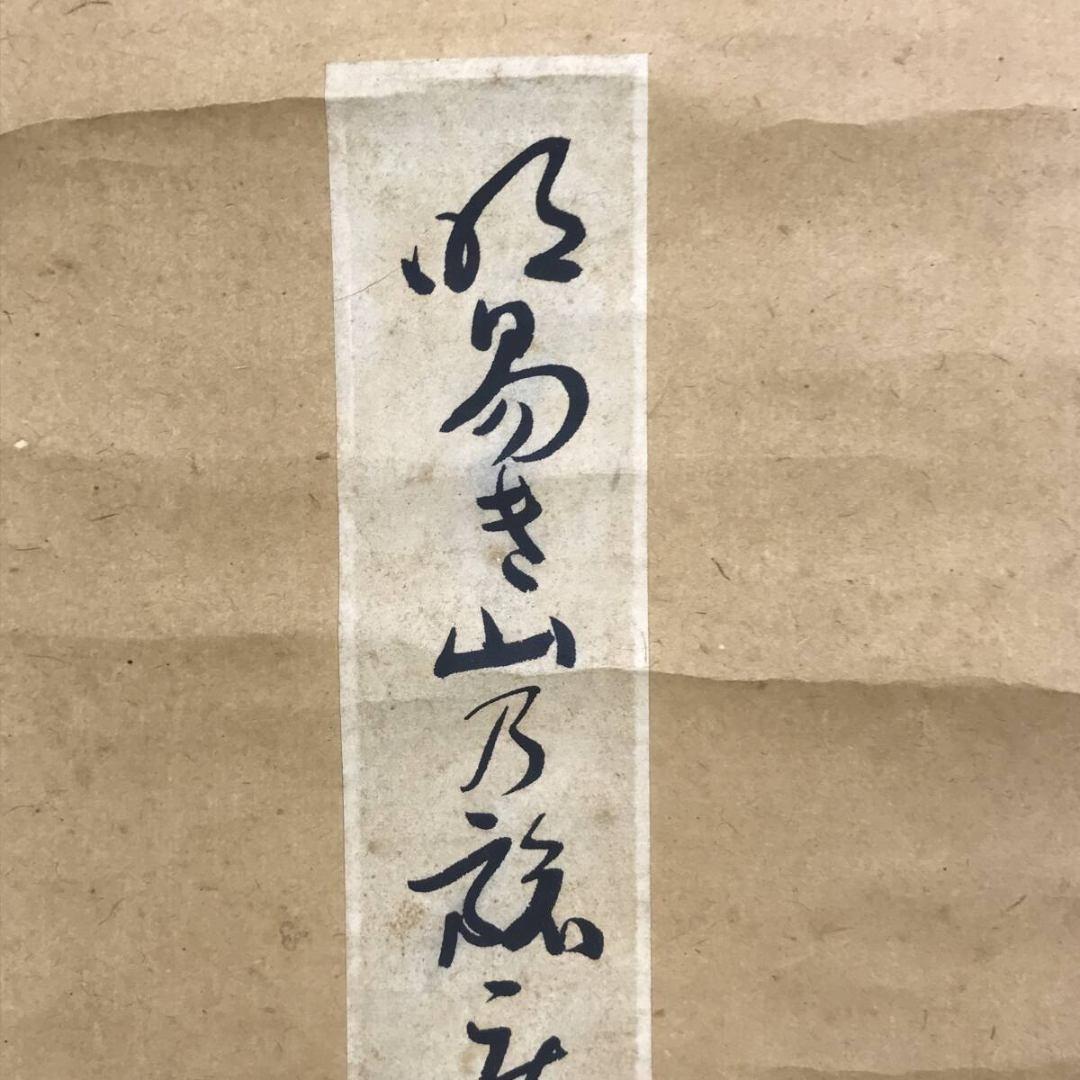 明易き山乃旅